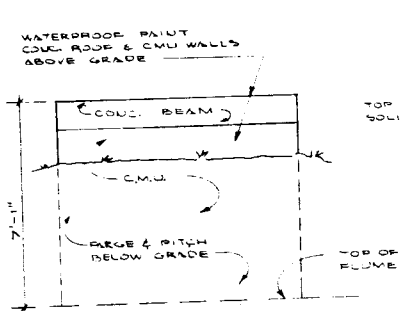 WATERPROOF PAINT
CONC. ROOF & CMU WALLS
ABOVE GRADE
CONC. BEAM
TOP
SOLI
C.M.U.
7'-1"
PARGE & PITCH
BELOW GRADE
TOP OF
FLUME